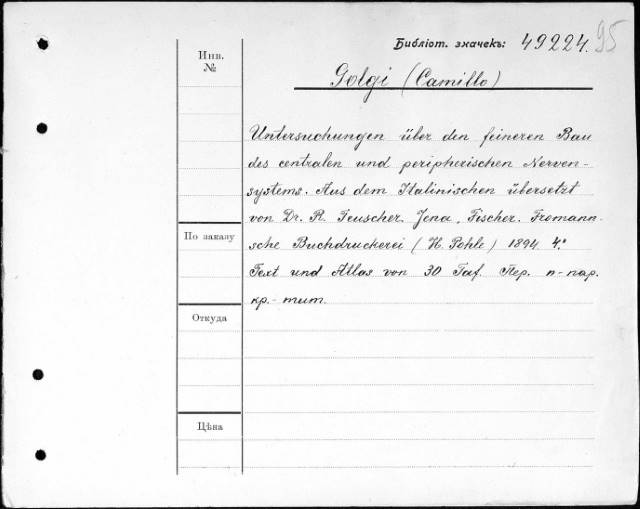 Библіот. значекъ: 49224. 95
Инв.
№
Golgi (Camillo)
Untersuchungen über den feineren Bau
des centralen und peripherischen Nerven-
systems. Aus dem Italinischen übersetzt
von Dr. R. Teuscher. Jena, Fischer. Fromann-
По заказу
sche Buchdruckerei (H. Pohle) 1894. 4°
Text und Atlas von 30 Taf. Пер. п-пар.
кр.-тит.
Откуда
Цѣна